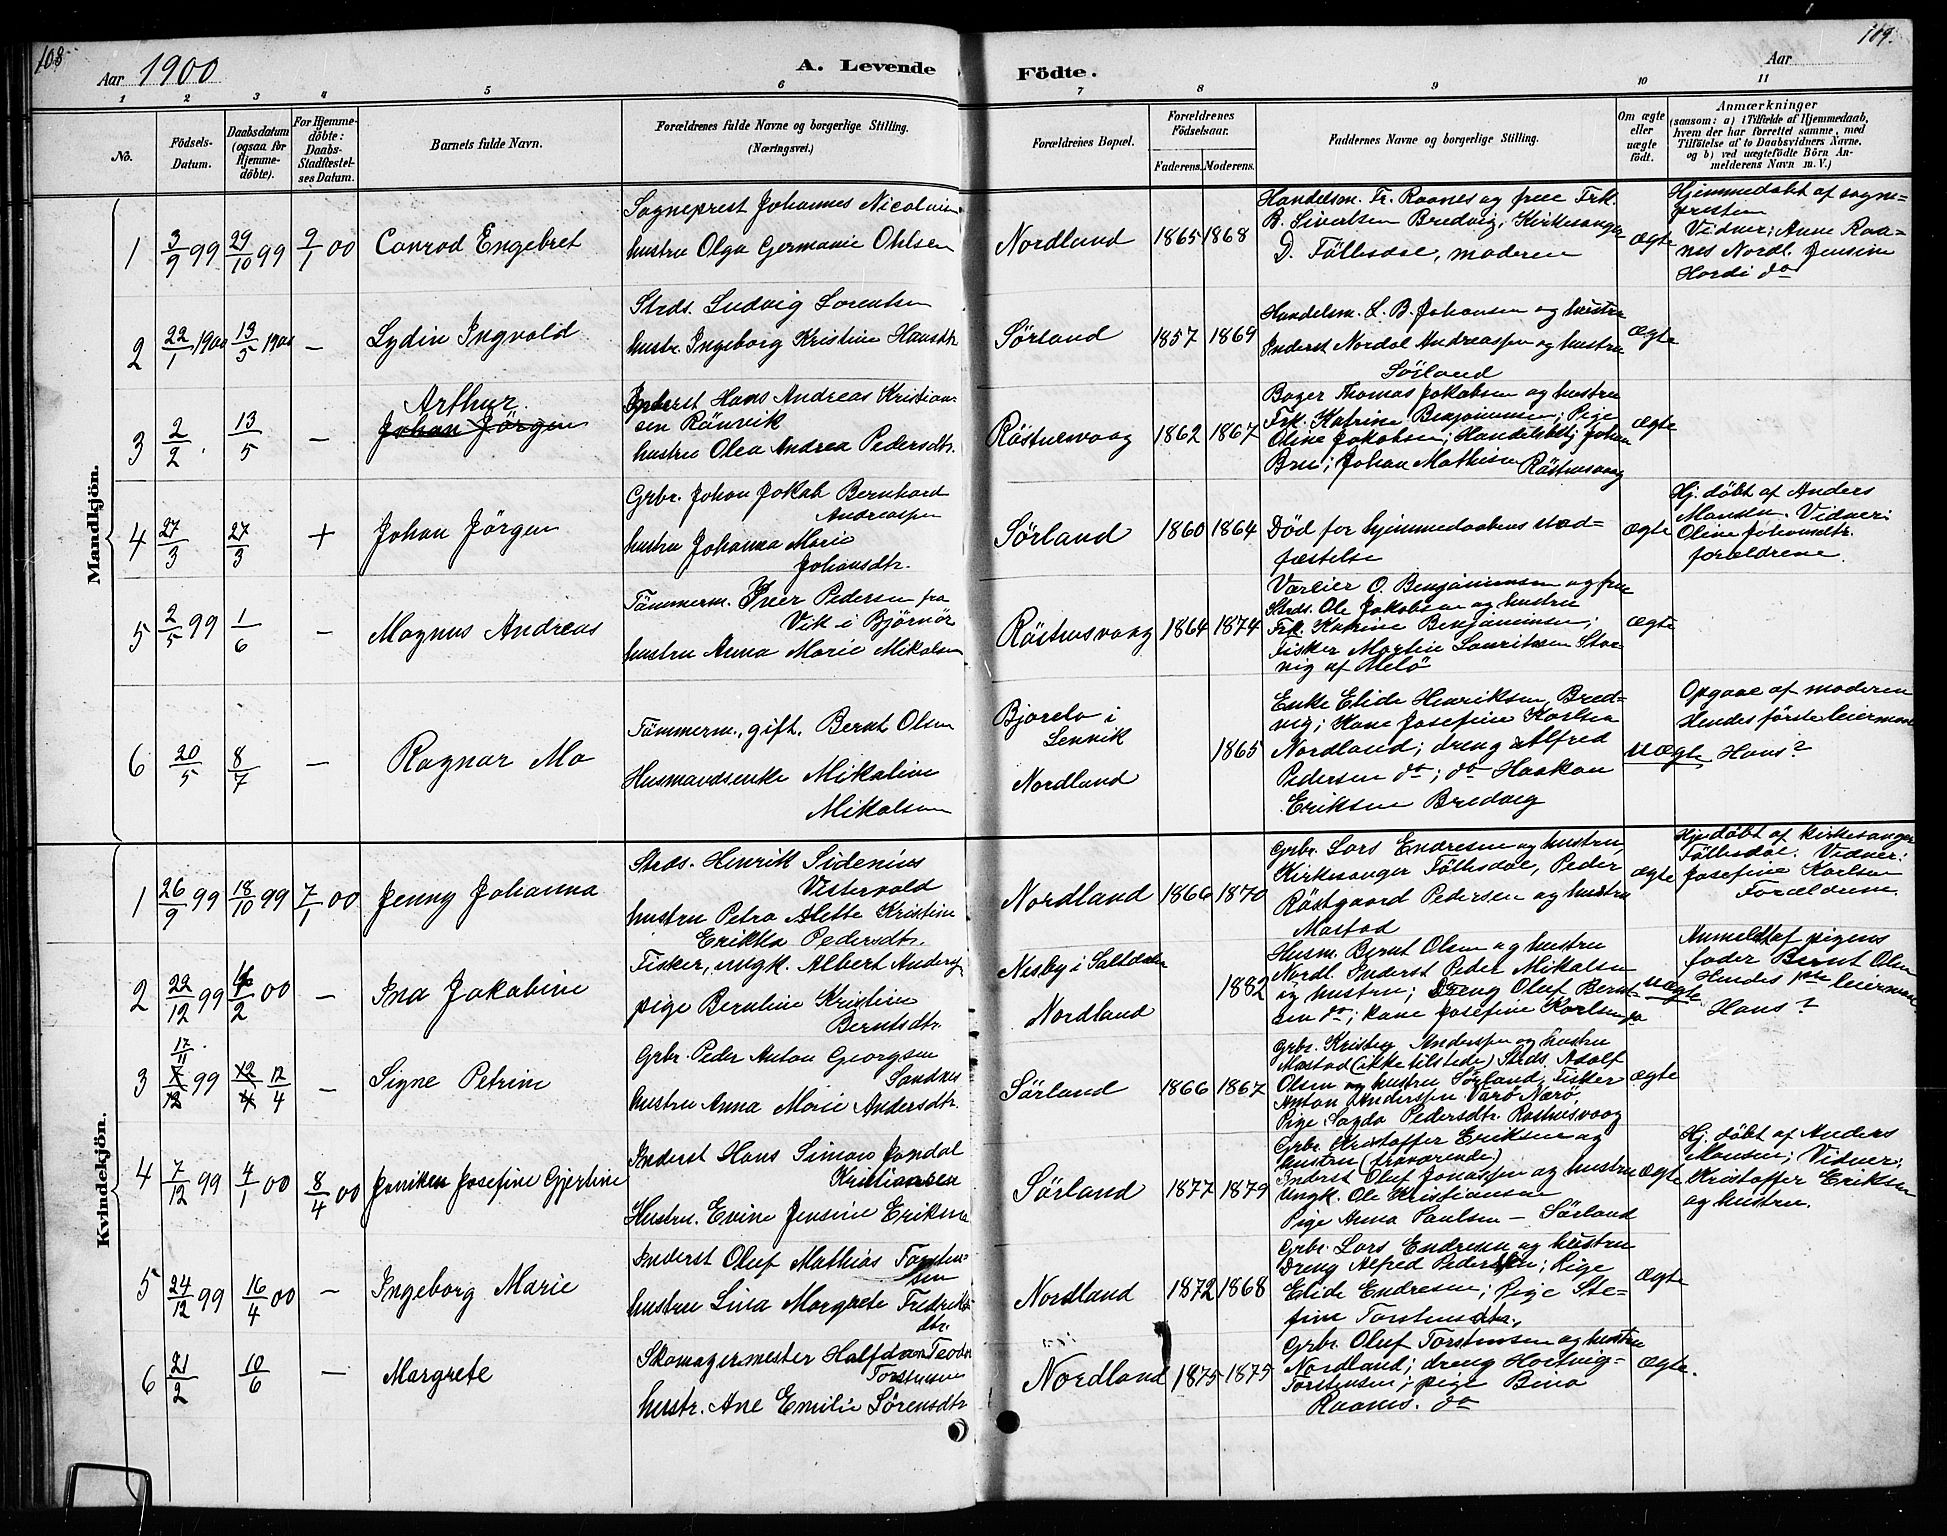 108
109.
Aar 1900
A. Levende Födte.
Aar
1 2 3 4 5 6 7 8 9 10 11
No.
Födsels-
Datum.
Daabsdatum
(ogsaa for
Hjemme-
döbte).
For Hjemme-
döbte:
Daabs-
Stadfæstel-
ses Datum.
Barnets fulde Navn.
Forældrenes fulde Navne og borgerlige Stilling.
(Næringsvei.)
Forældrenes Bopæl.
Forældrenes
Födselsaar.
Faderens.
Moderens.
Faddernes Navne og borgerlige Stilling.
Om ægte
eller
uægte
födt.
Anmærkninger
(saasom: a) i Tilfælde af Hjemmedaab,
hvem der har forrettet samme, med
Tilföielse af to Daabsvidners Navne,
og b) ved uægtefödte Börn An-
melderens Navn m. V.)
Mandkjön.
1 3/9 99 29/10 99 9/1 00 Conrad Engebret
Sogneprest Johannes Nicolaisen
hustru Olga Germanie Ohlsen
Nordland 1865 1868
Handelsm. Fr. Raanes og frue Frk.
B. Sivertsen Bredvig, Kirkesanger
D. Föllesdal, moderen
ægte
Hjemmedöbt af sogne-
presten
Vidner: Anne Raa-
nes Nordl. Jensine
Hordi do
2 22/1 1900 13/5 1900 — Lydin Ingvald
Strds. Ludvig Lorentsen
hustr. Ingeborg Kristine Hansdtr
Sørland 1857 1869
Handelsm. L. B. Johansen og hustru
Inderst Nordal Andreassen og hustru
Sørland
ægte
3 2/2 13/5 — Arthur
Johan Jörgen
Inderst Hans Andreas Kristian-
sen Rånvik
hustru Olea Andrea Pedersdtr.
Röstnesvaag 1862 1867
Bager Thomas Jakobsen og hustru
Frk. Katrine Benjaminsen; Pige
Oline Jakobsen; Handelsbetj. Johan
Brun; Johan Mathisen Röstnesvaag
ægte
4 27/3 27/3 + Johan Jörgen
Grbr. Johan Jakob Bernhard
Andreassen
hustru Johanna Marie
Johansdtr.
Sørland 1860 1864
Död før hjemmedaabens stad-
fæstelse
ægte
Hj. döbt af Anders
Monsen. Vidner:
Oline Johansdtr.
forældrene
5 2/5 99 1/6 — Magnus Andreas
Tömmerm. Iver Pedersen fra
Vik i Bjørnör
hustru Anna Marie Mikalsen
Röstnesvaag 1864 1874
Væreier O. Benjaminsen og frue
Strds. Ole Jakobsen og hustru
Frk. Katrine Benjaminsen;
Fisker Martin Lauritsen Stor-
vig af Melö
ægte
6 20/5 8/7 — Ragnar Mo
Tömmerm., gift. Bernt Olsen
Husmandsenke Mikaline
Mikalsen
Bjorelv i
Lenvik
Nordland
1865
Enke Elide Henriksen Bred-
vig; Kone Josefine Karlsen
Nordland; dreng Alfred
Pedersen do; do Haakon
Eriksen Bredvig
uægte
Opgave af moderen
Hendes første leiermaal
Hans?
Kvindekjön.
1 26/9 99 18/10 99 7/1 00 Jenny Johanna
Strds. Henrik Sidenius
Vestervold
hustru Petra Alette Kristine
Erikka Pedersdtr.
Nordland 1866 1870
Grbr. Lars Endresen og hustru
Kirkesanger Föllesdal, Peder
Röstgaard Pedersen og hustru
Mastad
ægte
Hje.döbt af kirkesanger
Föllesdal. Vidner:
Josefine Karlsen
Forældrene.
2 22/12 99 16/2 00 — Ina Jakobine
Fisker, ungk. Albert Anders
pige Bernline Kristine
Berntsdtr.
Nesby i Saltdalen
Nordland
1882
Husm. Bernt Olsen og hustru
Nordl. Inderst Peder Mikalsen
og hustru; Dreng Oluf Bernt-
sen do; kone Josefine Karlsen do
uægte
Anmeldt af pigens
fader Bernt Olsen
Hendes 1ste leiermaal
Hans?
3 17/11 7/12 99 12/4 12/4 — Signe Petrine
Grbr. Peder Anton Georgsen
Sandnes
hustru Anna Marie Andersdtr.
Sørland 1866 1867
Grbr. Kristen Anderssen og hustru
Mastad (ikke tilstede) Strds. Adolf
Olsen og hustru Sørland; Fisker
Anton Anderssen Varö Nærö,
Pige Magda Pedersdtr. Röstnesvaag
ægte
4 7/12 99 4/1 00 8/4 00 Jenriken Josefine Gjertine
Inderst Hans Simon Jondal
Kristiansen
Hustru. Evine Jensine Eriksen
Sørland 1877 1879
Grbr. Kristoffer Eriksen og
hustru (fraværende)
Inderst Oluf Jonassen og hustru
Ungk. Ole Kristiansen
Pige Anna Paulsen — Sørland
ægte
Hj. döbt af Anders
Monsen; Vidner:
Kristoffer Eriksen
og hustru.
5 24/12 99 16/4 00 — Ingeborg Marie
Inderst Oluf Mathias Torsten-
sen
hustru Lina Margrete Fredriks-
dtr.
Nordland 1872 1868
Grbr. Lars Endresen og hustru
Dreng Alfred Pedersen; Pige
Elide Endresen; Pige Ste-
fine Torstensdtr.
ægte
6 21/2 10/6 — Margrete
Skomagermester Halfdan Teodor
Torstensen
hustr. Ane Emilie Sørensdtr
Nordland 1875 1875
Grbr. Oluf Torstensen og hustru
Nordland; dreng Hartvig
Torstensen; pige Bina
Raanes. do
ægte.